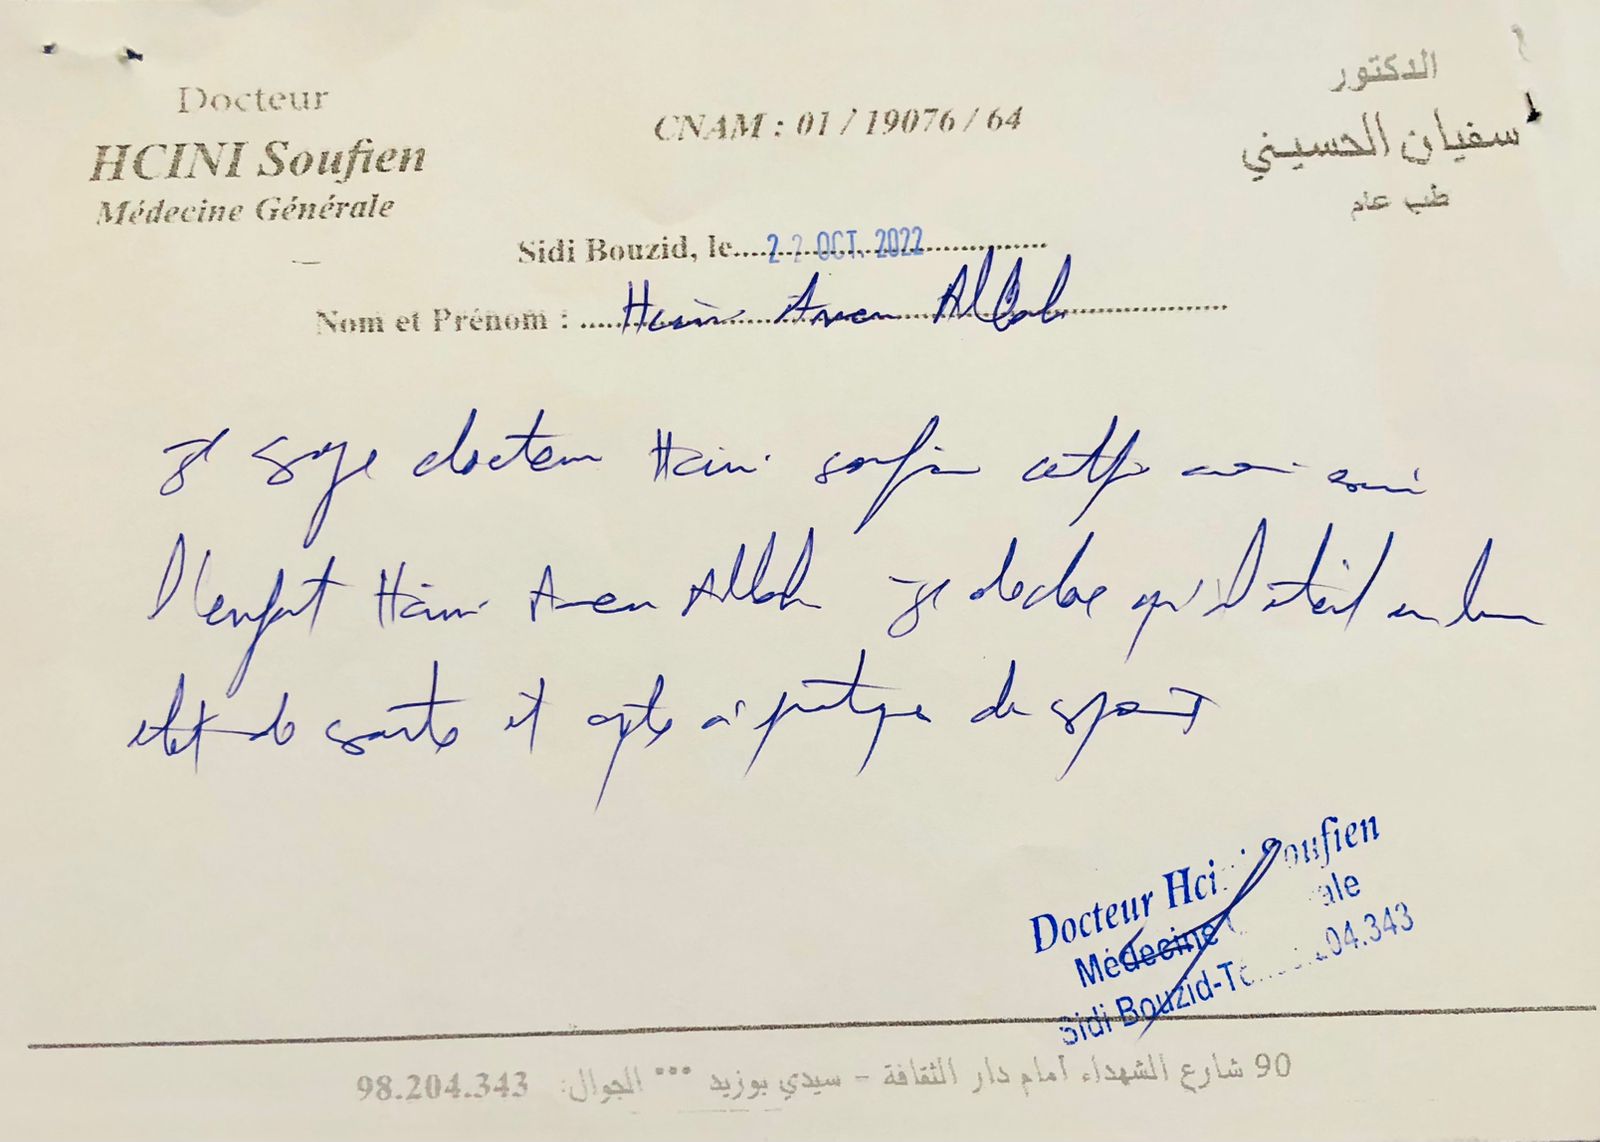 Docteur
HCINI Soufien
Médecine Générale
CNAM : 01 / 19076 / 64
الدكتور
سفيان الحسيني
طب عام
Sidi Bouzid, le 22 OCT. 2022
Nom et Prénom : Hcini Amen Allah
je docteur Hcini soufien
l'enfant Hcini Amen Allah je declare qu'il était en bon
etat de sante et apte à pratique du sport
Docteur Hcini Soufien
Médecine
Sidi Bouzid-
90 شارع الشهداء أمام دار الثقافة - سيدي بوزيد *** الجوال: 98.204.343